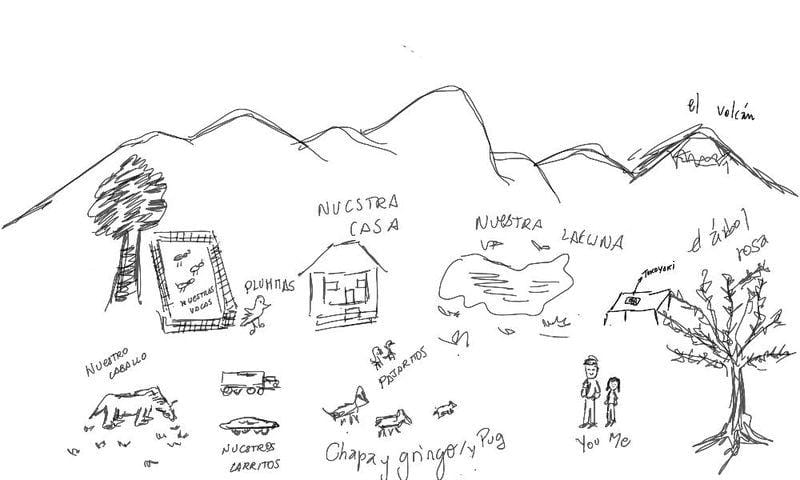 el volcán
NUESTRA
CASA
NUESTRA LAGUNA
el árbol
rosa
PLUMITAS
NUESTRAS
VACAS
NUESTRO
CABALLO
PAJARITOS
NUESTROS
CARRITOS
Chapa y gringo/y Pug
You Me